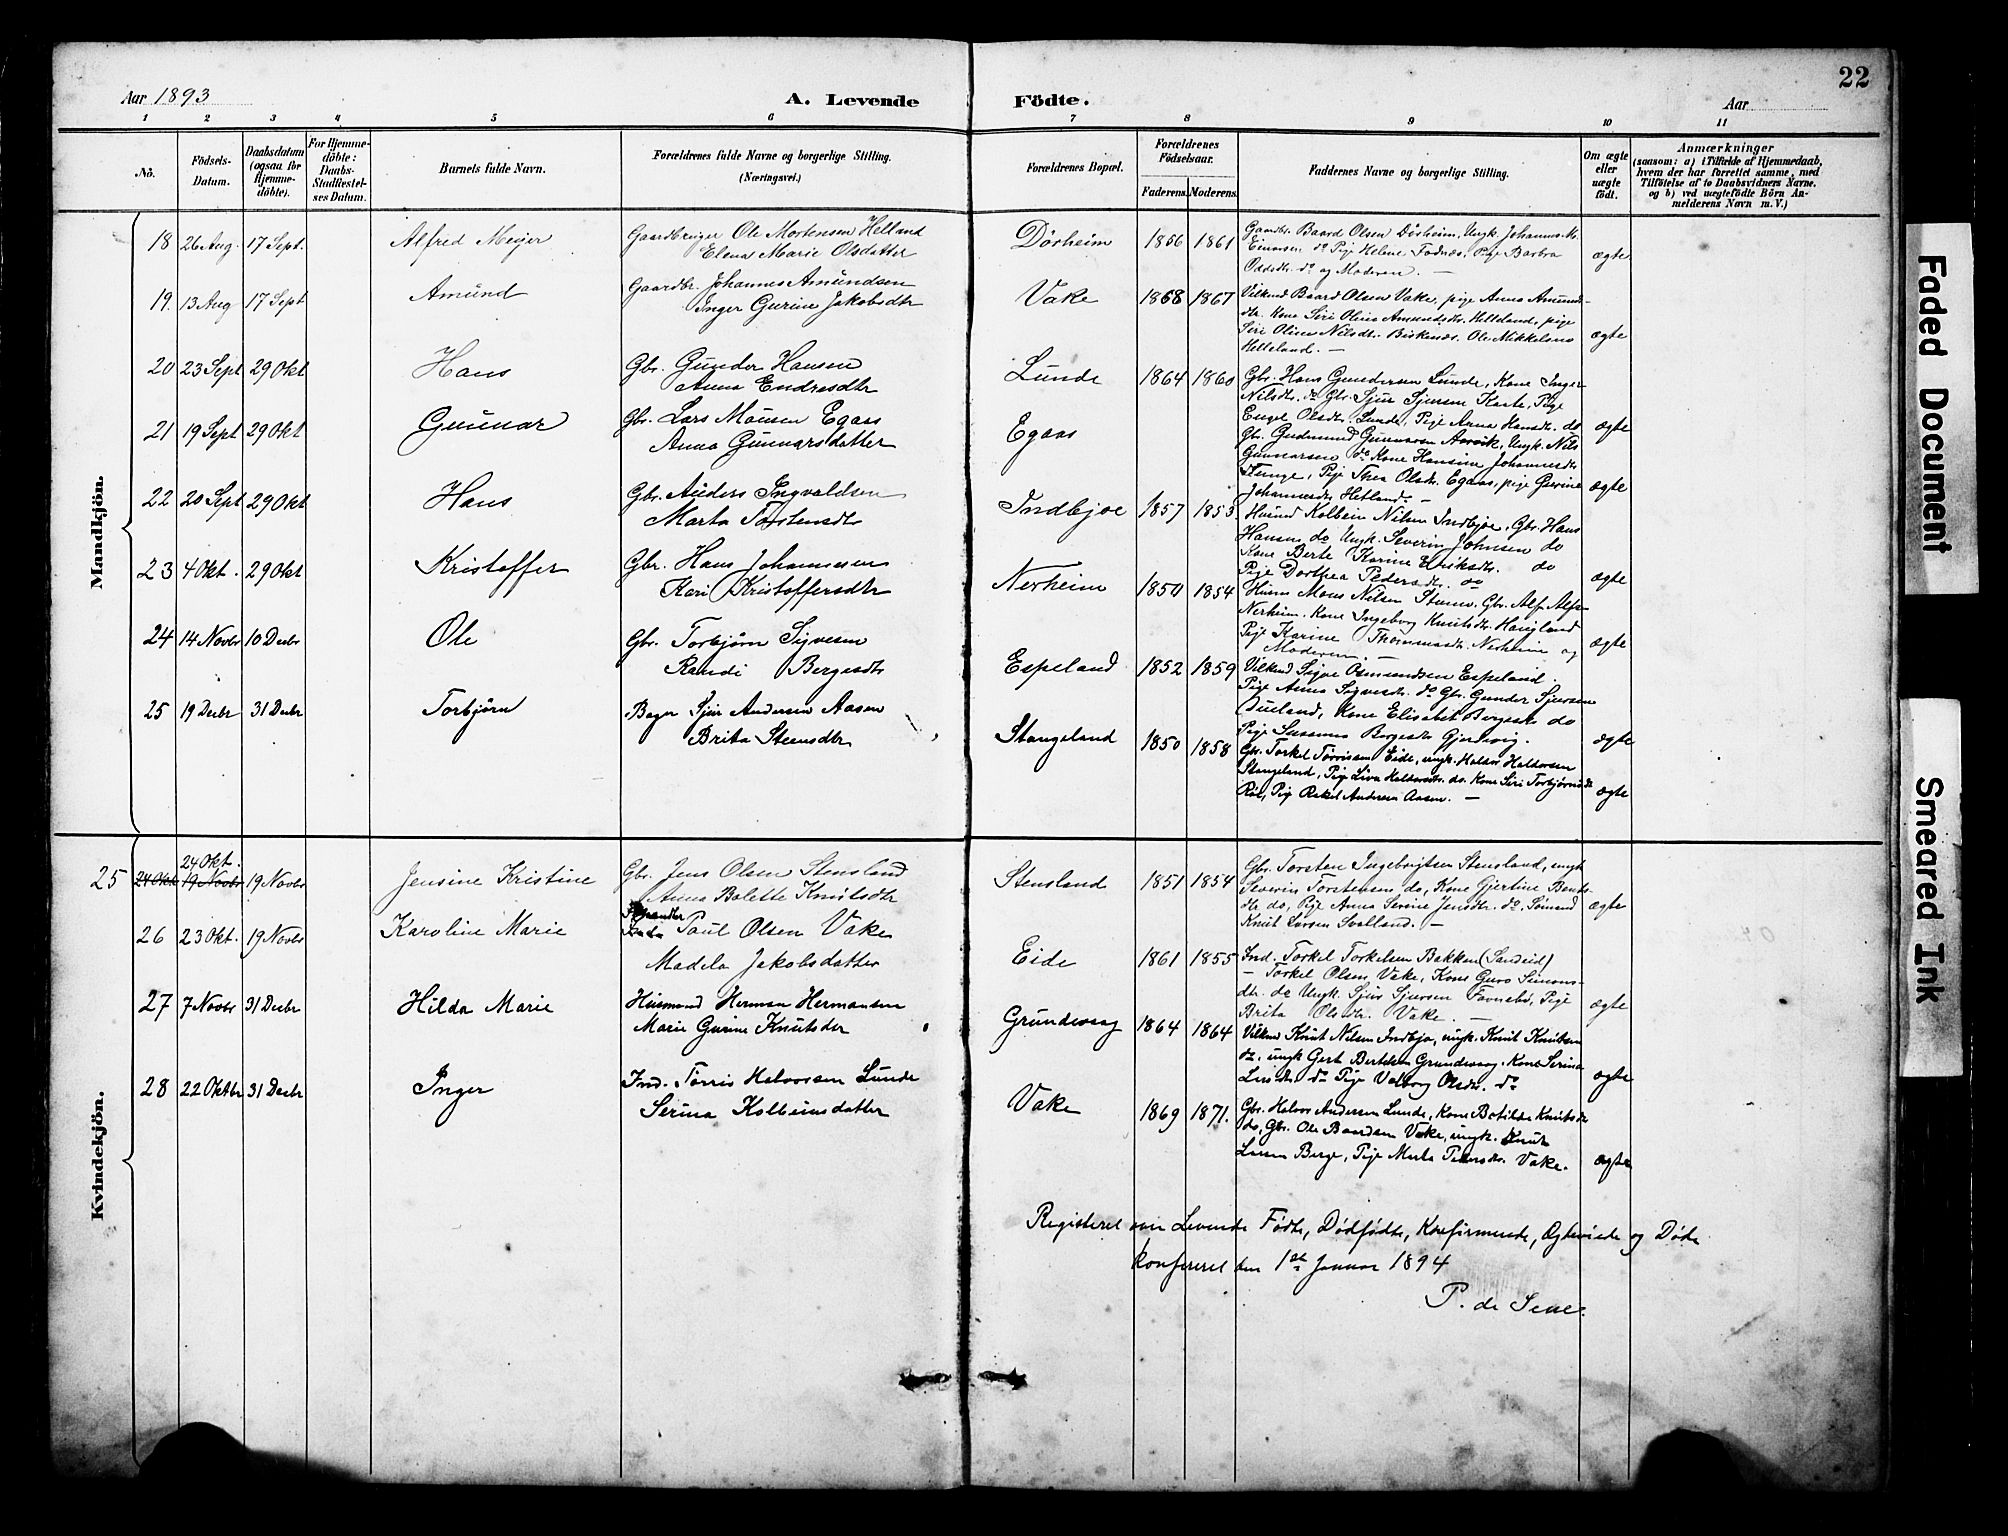 22
Aar 1893
A. Levende
Födte.
Aar
1 2 3 4 5 6 7 8 9 10 11
No.
Födsels-Datum.
Daabsdatum (ogsaa for Hjemmedöbte).
For Hjemmedöbte: Daabs-Stadfæstelses Datum.
Barnets fulde Navn.
Forældrenes fulde Navne og borgerlige Stilling.
(Næringsvei.)
Forældrenes Bopæl.
Forældrenes Födselsaar.
Faderens. Moderens.
Faddernes Navne og borgerlige Stilling.
Om ægte eller uægte födt.
Anmærkninger
(saasom: a) i Tilfælde af Hjemmedaab,
hvem der har forrettet samme, med
Tilföielse af to Daabsvidners Navne,
og b) ved uægtefödte Börn An-
melderens Navn m. V.)
Mandkjön.
18 26 Aug. 17 Sept. Alfred Meyer Gaardbruger Ole Mortensen Helland
Elena Marie Olsdatter
Dörheim 1856 1861 Gaardbr. Baard Olsen Dörheim, Ungk. Johannes M.
Einarsen do Pige Helene Fodnæs, Pige Barbra
Oddsdtr. do og Moderen. — ægte
19 13 Aug 17 Sept Amund Gaardbr. Johannes Amundsen
Inger Gurine Jakobsdtr
Vake 1868 1867 Vilkmd Baard Olsen Vake, pige Anna Amund-
dtr. Kone Siri Olina Amundsdtr. Helleland, pige
Siri Olina Nilsdtr. Biskenæs. Ole Mikkelsen
Helleland. — ægte
20 23 Sept 29 Okt Hans Gbr. Gunder Hansen
Anna Endresdtr
Lunde 1864 1860 Gbr. Hans Gundersen Lunde, Kone Inger
Nilsdtr. do Gbr. Sjur Sjursen Kaate, Pige
Engel Olsdtr. Lunde, Pige Anna Hansdtr. do ægte
21 19 Sept 29 Okt Gunnar Gbr. Lars Monsen Egaas
Anna Gunnarsdatter
Egaas
Gbr. Gudmund Gunnarsen Aarvik, Ungk. Nils
Gunnarsen do Kone Hansine Johannesdtr
Pige Thea Olsdtr. Egaas, pige Gurine
Johannesdtr Hetland. — ægte
22 20 Sept 29 Okt Hans Gbr. Anders Ingvaldsen
Marta Torstensdtr
Indbjoe 1857 1853 Husmd Kolbein Nilsen Indbjoe, Gbr. Hans
Hansen do Ungk. Severin Johnsen do
Kone Berte Karine Eriksdtr. do
Pige Dorthea Pedersdtr. do ægte
23 4 Okt. 29 Okt Kristoffer Gbr. Hans Johannesen
Kari Kristoffersdtr
Nerheim 1850 1854 Husm Mons Nilsen Stumo, Gbr. Alf Alfs-
Nerheim, Kone Ingeborg Knutsdtr. Haugland
Pige Karine Thommasdtr. Nerheim og
Moderen. — ægte
24 14 Novbr 10 Decbr Ole Gbr. Torbjörn Sigvesen
Randi Bergesdtr
Espeland 1852 1859 Vilkmd Sigve Osmundsen Espeland.
Pige Anna Sigvesdtr. do Gbr. Gunder Sjursen
Kone Elisabet Bergesdtr do
Pige Susanna Bergesdtr Gjerdevig. ægte
25 19 Decbr 31 Decbr Torbjörn Bager Sjur Andersen Aasen
Brita Steensdtr
Stangeland 1850 1858 Gbr. Torkel Törrisen Eide, ungk. Haldor Haldorsen
Stangeland, Pige Liva Haldorsdtr. do. Kone Siri Torbjörnsdtr
Pige Rakel Andersen Aasen. — ægte
Kvindekjön.
25 24 Okt. 19 Novbr Jensine Kristine Gbr. Jens Olsen Stensland
Anna Bolette Knutsdtr
Stensland 1851 1854 Gbr. Torsten Ingebrigtsen Stensland, ungk
Severin Torstensen do, Kone Gjertine Bents-
dtr do, Pige Anna Serine Jensdtr. do. Sömand
Knut Larsen Svalland. — ægte
26 23 Okt. 19 Novbr Karoline Marie Paul Olsen Vake
Madela Jakobsdatter
Eide 1861 1855 Ind. Torkel Torkelsen Bakken (Sandeid)
— Torkel Olsen Vake, Kone Guro Simons-
dtr. do Ungk. Sjur Sjursen Favnebö, Pige
Brita Olsdtr. Vake. — ægte
27 7 Novbr 31 Decbr Hilda Marie Husmand Herman Hermansen
Marie Gurine Knutsdtr
Grundevaag 1864 1864 Vilkmd Knut Nilsen Indbjo, ungk. Knut Knutsen
do, ungk Gert Bertelsen Grundevaag, Kone Serina
Larsdtr. do Pige Valborg Olsdtr. do ægte
28 22 Oktbr 31 Decbr Inger Ind. Torris Halvorsen Lunde
Serina Kolbeinsdatter
Vake 1869 1871. Gbr. Halvor Andersen Lunde, Kone Botilde Knutsdtr
do, Gbr. Ole Baardsen Vake, ungk. Knut
Larsen Berge, Pige Marta Pedersdtr. Vake. ægte
Registeret over Levende Fødte, Dødfødte, Konfirmerede, Ægteviede og Døde
konfereret den 1ste Januar 1894
P. de Seue.
Faded Document
Smeared Ink